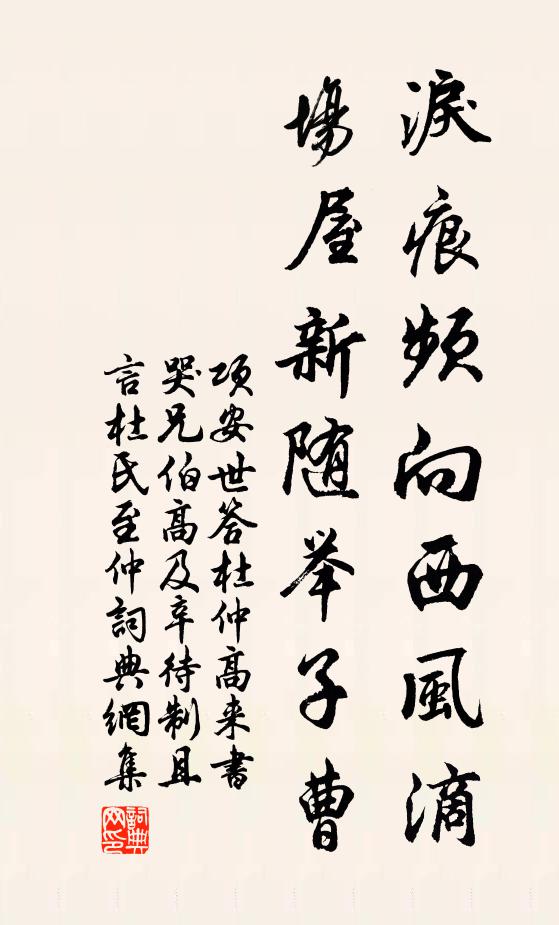 淚痕頻向西風滴
場屋新随举子曹
项安世答杜仲高来書
哭兄伯高及辛待制且
言杜氏至仲詞典網集
詞典网印